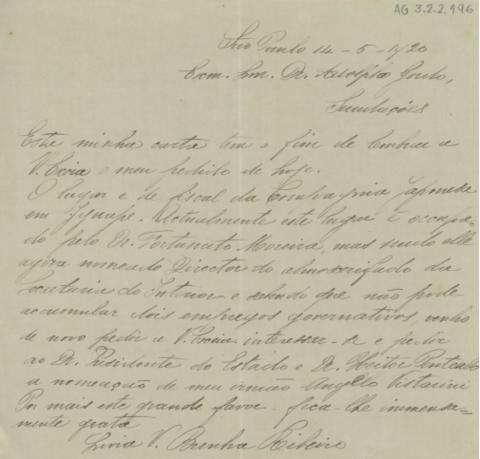 AG 3.2.2.196
São Paulo 14-5-1920
Exm. Snr. Dr. Adolpho Gordo,
Saudações
Esta minha carta tem o fim de lembrar a
V. Excia o meu pedido de hoje.
O lugar e de fiscal da Companhia Japoneza
em Iguape. Actualmente este lugar é occupa-
do pelo Dr. Fortunato Moreira, mas sendo elle
agora nomeado Director do almoxarifado da
Secretaria do Interior e sabendo que não pode
accumular dois empregos governativos venho
de novo pedir a V. Excia interessar-se e pedir
ao Dr. Presidente do Estado e Dr. Heitor Penteado
a nomeação de meu irmão Angelo
Por mais este grande favor fica-lhe immensa-
mente grata
Livia V. Brenha Ribeiro